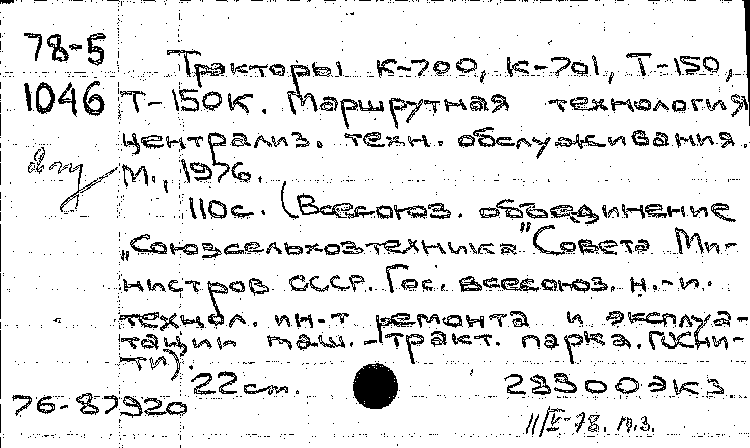 78-5
Тракторы К-700, К-701, Т-150,
1046 Т-150К. Маршрутная технология
централиз. техн. обслуживания.
М., 1976.
110с. (Всесоюз. объединение
"Союзсельхозтехника" Совета Ми-
нистров СССР. Гос. всесоюз. н.-и.
технол. ин-т ремонта и эксплуа-
тации маш.-тракт. парка. ГОСНИ-
ТИ).
22см. 28900экз
76-87920
11/V-78. п.з.